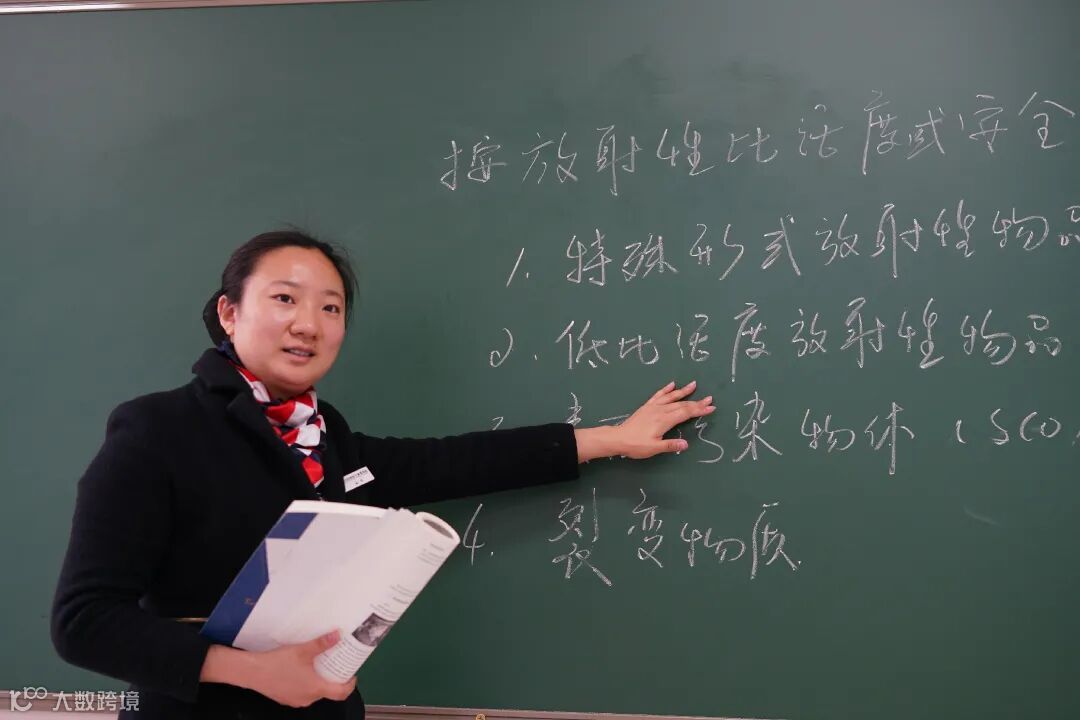 按放射性比活度或安全
1. 特殊形式放射性物品
2. 低比活度放射性物品
污染物体 (SCO)
4. 裂变物质.
大数跨境